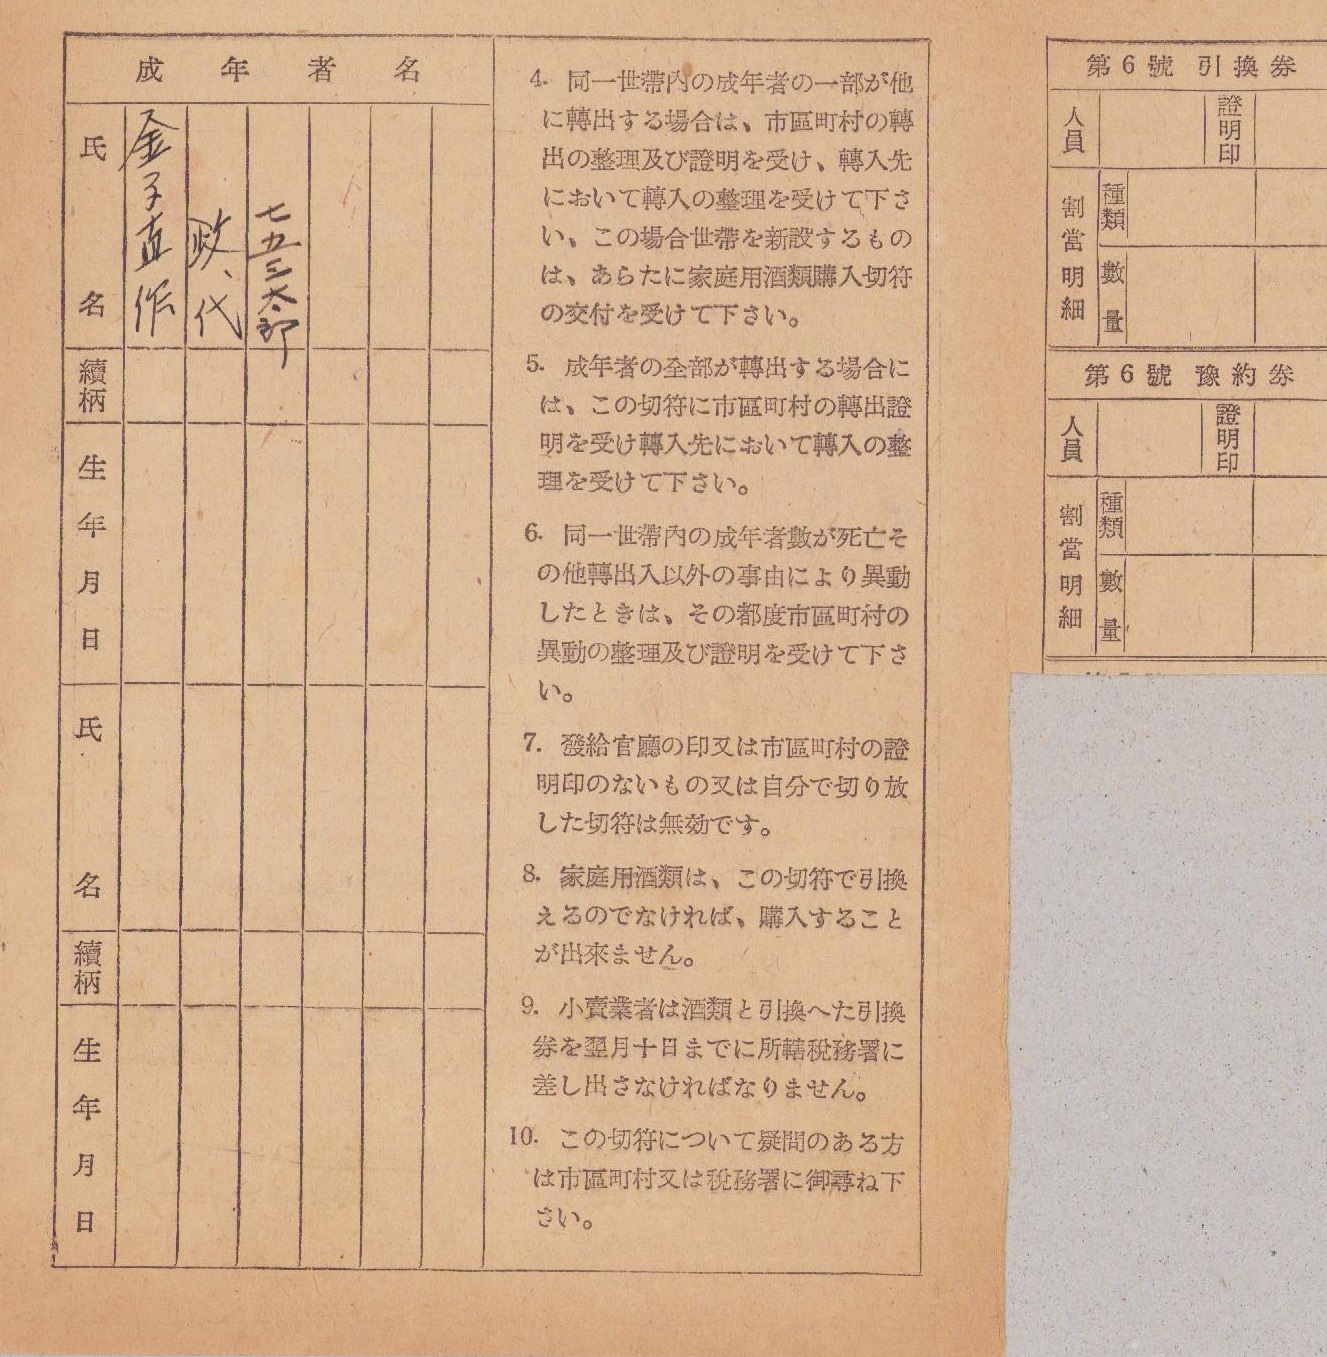 成年者名
氏名
金子直作
政、代
七五三太郎
續柄
生年月日
氏名
續柄
生年月日
4. 同一世帶内の成年者の一部が他
に轉出する場合は、市區町村の轉
出の整理及び證明を受け、轉入先
において轉入の整理を受けて下さ
い、この場合世帶を新設するもの
は、あらたに家庭用酒類購入切符
の交付を受けて下さい。
5. 成年者の全部が轉出する場合に
は、この切符に市區町村の轉出證
明を受け轉入先において轉入の整
理を受けて下さい。
6. 同一世帶内の成年者數が死亡そ
の他轉出入以外の事由により異動
したときは、その都度市區町村の
異動の整理及び證明を受けて下さ
い。
7. 發給官廳の印又は市區町村の證
明印のないもの又は自分で切り放
した切符は無効です。
8. 家庭用酒類は、この切符で引換
えるのでなければ、購入すること
が出來ません。
9. 小賣業者は酒類と引換へた引換
券を翌月十日までに所轄稅務署に
差し出さなければなりません。
10. この切符について疑問のある方
は市區町村又は稅務署に御尋ね下
さい。
第6號 引換券
人員
證明印
割當明細
種類
數量
第6號 豫約券
人員
證明印
割當明細
種類
數量